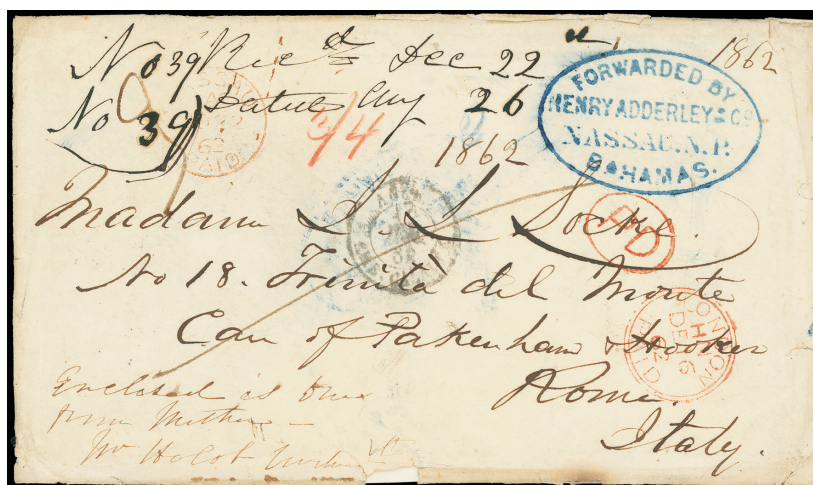 No 39 Rec'd Dec 22 1862
No 39 Dated Aug 26
1862
3/4
FORWARDED BY
HENRY ADDERLEY & Co
NASSAU. N. P.
BAHAMAS.
PD
Madam L. L. Locke.
No 18. Trinità del Monte
Care of Pakenham & Hooker
Rome.
Italy.
LONDON
H
DE 6
62
PAID
Enclosed is one
from Mother